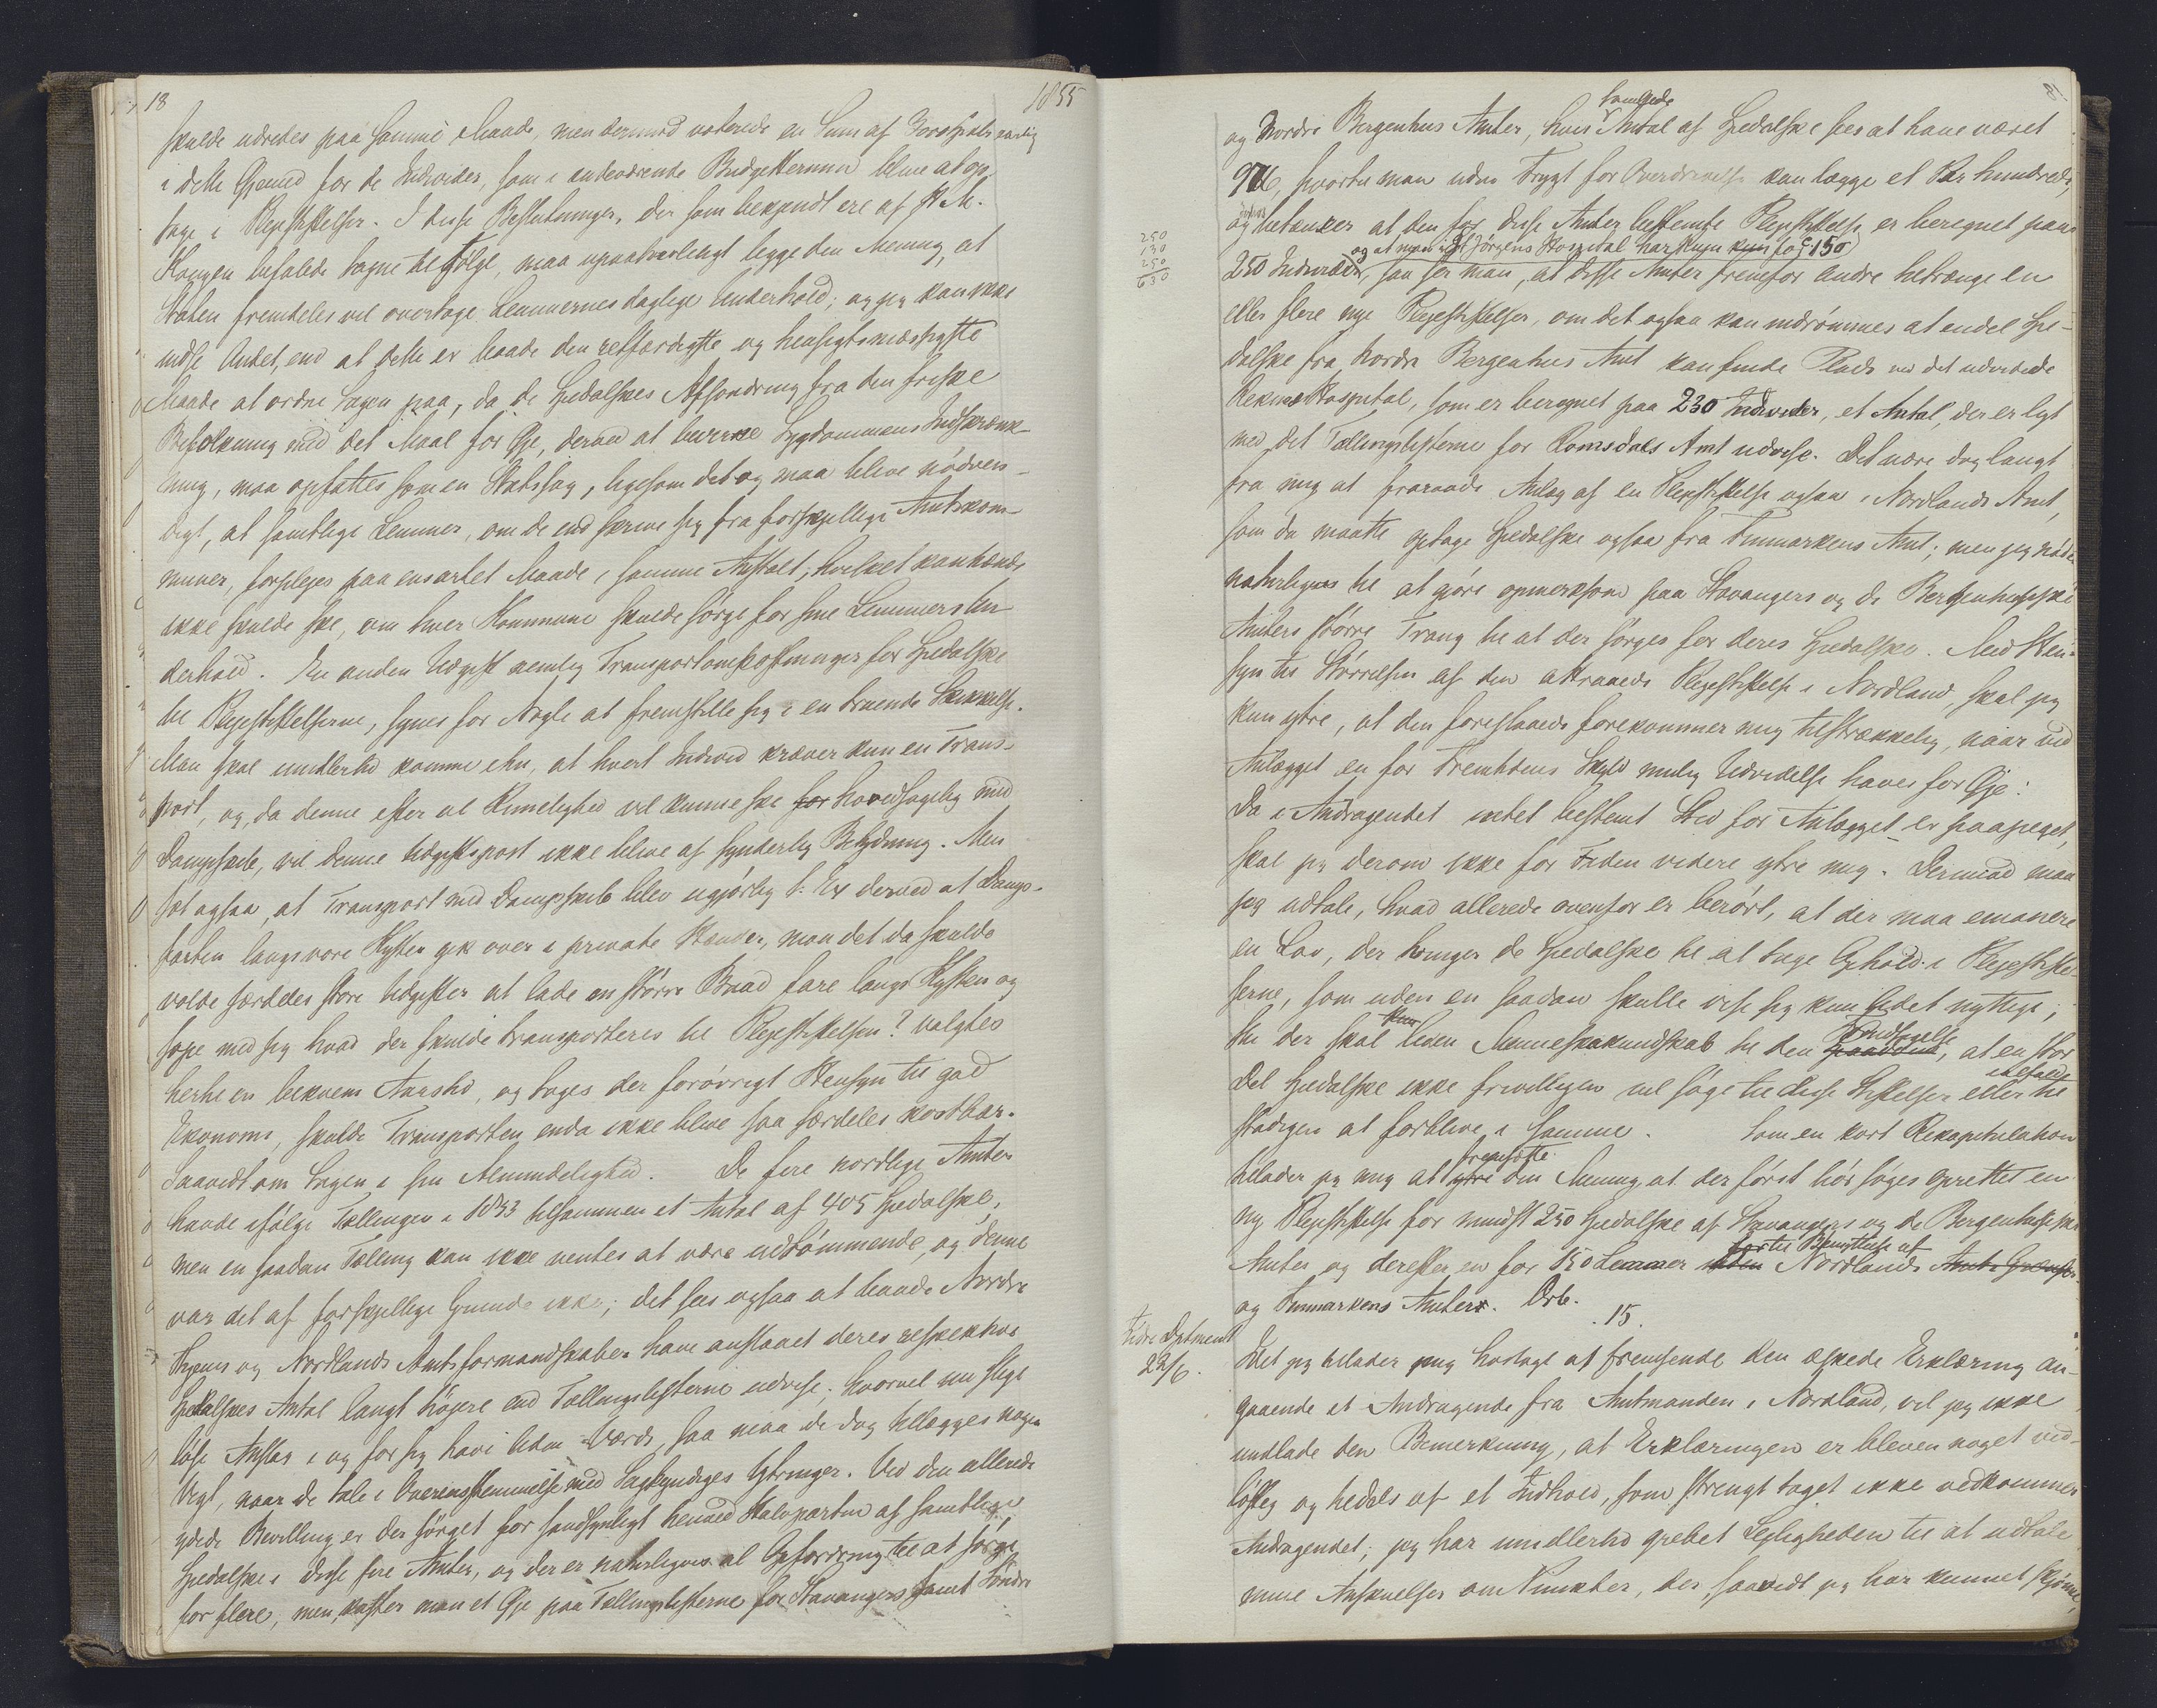 18
1855
skulde udredes paa samme Maade, men dermed voterede en Sum af
i dette Øiemed for de Individer, som i indeværende Budgettermin bleve at op-
tage i Plejestiftelser. I disse Beslutninger, der som bekjendt ere af H. M.
Kongen befalede tagne tilfølge, maa upaatvivleligt ligge den Mening, at
Staten fremdeles vil overtage Lemmernes daglige Underhold; og jeg kan ikke
indse Andet, end at dette er baade den retfærdigste og hensigtsmæssigste
Maade at ordne Sagen paa, da de Spedalskes Afsondring fra den friske
Befolkning med det Maal for Øje, derved at bevirke Sygdommens Indskrænk-
ning, maa opfattes som en Statssag, ligesom det og maa blive nödven-
digt, at samtlige Lemmer, om de end skrive sig fra forskjellige Amtskom-
muner, forplejes paa ensartet Maade i samme Anstalt; hvilket kanhænde
ikke skulde ske, om hver Kommune skulde sörge for sine Lemmers Un-
derhold. En anden Udgift nemlig Transportomkostninger for Spedalske
til Plejestiftelserne, synes for Nogle at fremstille sig i en truende Skikkelse.
Man skal imidlertid komme ihu, at hvert Individ kræver kun en Trans-
port, og, da denne efter al Rimelighed vil kunne ske for hovedsagelig med
Dampskib, vil denne Udgiftspost ikke blive af synderlig Betydning. Men
sæt ogsaa, at Transport med Dampskib blev ugjörlig t. Ex derved at Damp-
farten langs vore Kyster gik over i private Hænder, mon det da skulde
volde særdeles store Udgifter at lade en större Baad fare langs Kysten og
tage med sig hvad der skulde transporteres til Plejestiftelsen? Valgtes
hertil en bekvem Aarstid, og toges der forövrigt Hensyn til god
Ekonomi, skulde Transporten enda ikke blive saa særdeles kostbar.
Saavidt om Sagen i sin Almindelighed. De fire nordlige Amter
havde ifölge Tællingen i 1853 tilsammen et Antal af 405 Spedalske;
men en saadan Tælling kan ikke ventes at være udtömmende, og denne
var det af forskjellige Grunde ikke; det sees ogsaa at baade Nordre
Thjems og Nordlands Amtsformandskaber have anslaaet deres respektive
Spedalskes Antal langt höjere end Tællingslisterne udvise; hvorvel nu sligt
löse Anslag i og for sig have liden Værd, saa maa de dog tillægges nogen
Vegt, naar de tale i Overensstemmelse med Sagkyndiges Ytringer. Ved den allerede
gjorde Bevilling er der sörget for sandsynligt henved Halvparten af samtlige
Spedalske i disse fire Amter, og der er naturligvis al Opfordring til at sörge
for flere, men, kaster man et Øje paa Tællingslisterne for Stavangers samt Söndre
og Nordre Bergenhus Amter, hvis samlede Antal af Spedalske sees at have været
976, hvortil man uden Frygt for Overdrivelse kan lægge et Par hundrede,
og betænker at den for disse Amter bestemte Plejestiftelse er beregnet paa
og at man i St Jörgens Hospital har Rum kun for c 150
250 Individer, saa ser man, at disse Amter fremfor andre betrænge en
250
130
250
630
eller flere nye Plejestiftelser, om det ogsaa kan indrömmes at endel Spe-
dalske fra Nordre Bergenhus Amt kan finde Plads ved det udvidede
Reknes Hospital, som er beregnet paa 230 Individer, et Antal, der er ligt
med det Tællingslisterne for Romsdals Amt udvise. Det være dog langt
fra mig at fraraade Anlæg af en Plejestiftelse ogsaa i Nordlands Amt,
som da maatte optage Spedalske ogsaa fra Finmarkens Amt; men jeg nödes
naturligvis til at gjöre opmerksom paa Stavangers og de Bergenhusiske
Amters större Trang til at der sörges for deres Spedalske. Med Hen-
syn til Störrelsen af den attraaede Plejestiftelse i Nordland, skal jeg
kun ytre, at den foreslaaede forekommer mig tilstrækkelig, naar ved
Anlægget en for Fremtidens Skyld mulig Udvidelse haves for Øje.
Da i Andragendet intet bestemt Sted for Anlægget er paapeget,
skal jeg derom ikke for Tiden videre ytre mig. Derimod maa
jeg udtale, hvad allerede ovenfor er berört, at der maa emanere
en Lov, der tvinger de Spedalske til at tage Ophold i Plejestiftel-
serne, som uden en saadan skulle vise sig kun lidet nyttige;
thi der skal kun liden Menneskekundskab til den Indseelse, at en stor
Del Spedalske ikke frivilligen vil söge til disse Stiftelser eller til
stadigen at forblive i samme. Som en kort Rekapitulation
tillader jeg mig at ytre fremsætte den Mening, at der först bör söges oprettet en
ny Plejestiftelse for mindst 250 Spedalske af Stavangers og de Bergenhusiske
Amter og derefter en for 150 Lemmer uden til Benyttelse af Nordlands Amts Grændser
og Finmarkens Amter. Drb.
15.
Indre Dptment
22/6.
Idet jeg tillader mig hoslagt at fremsende den æskede Erklæring an-
gaaende et Andragende fra Amtmanden i Nordland, vil jeg ikke
undlade den Bemerkning, at Erklæringen er bleven noget vid-
löftig og tildels af et Indhold, som strengt taget ikke vedkommer
Andragendet; jeg har imidlertid grebet Lejligheden til at udtale
mine Anskuelser om Punkter, der, saavidt jeg har kunnet skjönne,